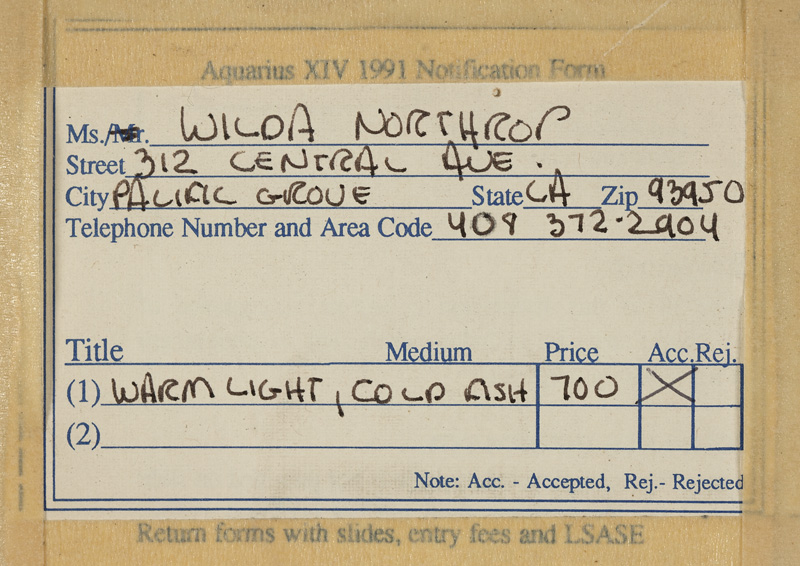 Aquarius XIV 1991 Notification Form
Ms./Mr. WILDA NORTHROP
Street 312 CENTRAL AVE.
City PACIFIC GROVE State CA Zip 93950
Telephone Number and Area Code 408 372-2904
Title Medium Price Acc. Rej.
(1) WARM LIGHT, COLD FISH 700 X
(2)
Note: Acc. - Accepted, Rej.- Rejected
Return forms with slides, entry fees and LSASE